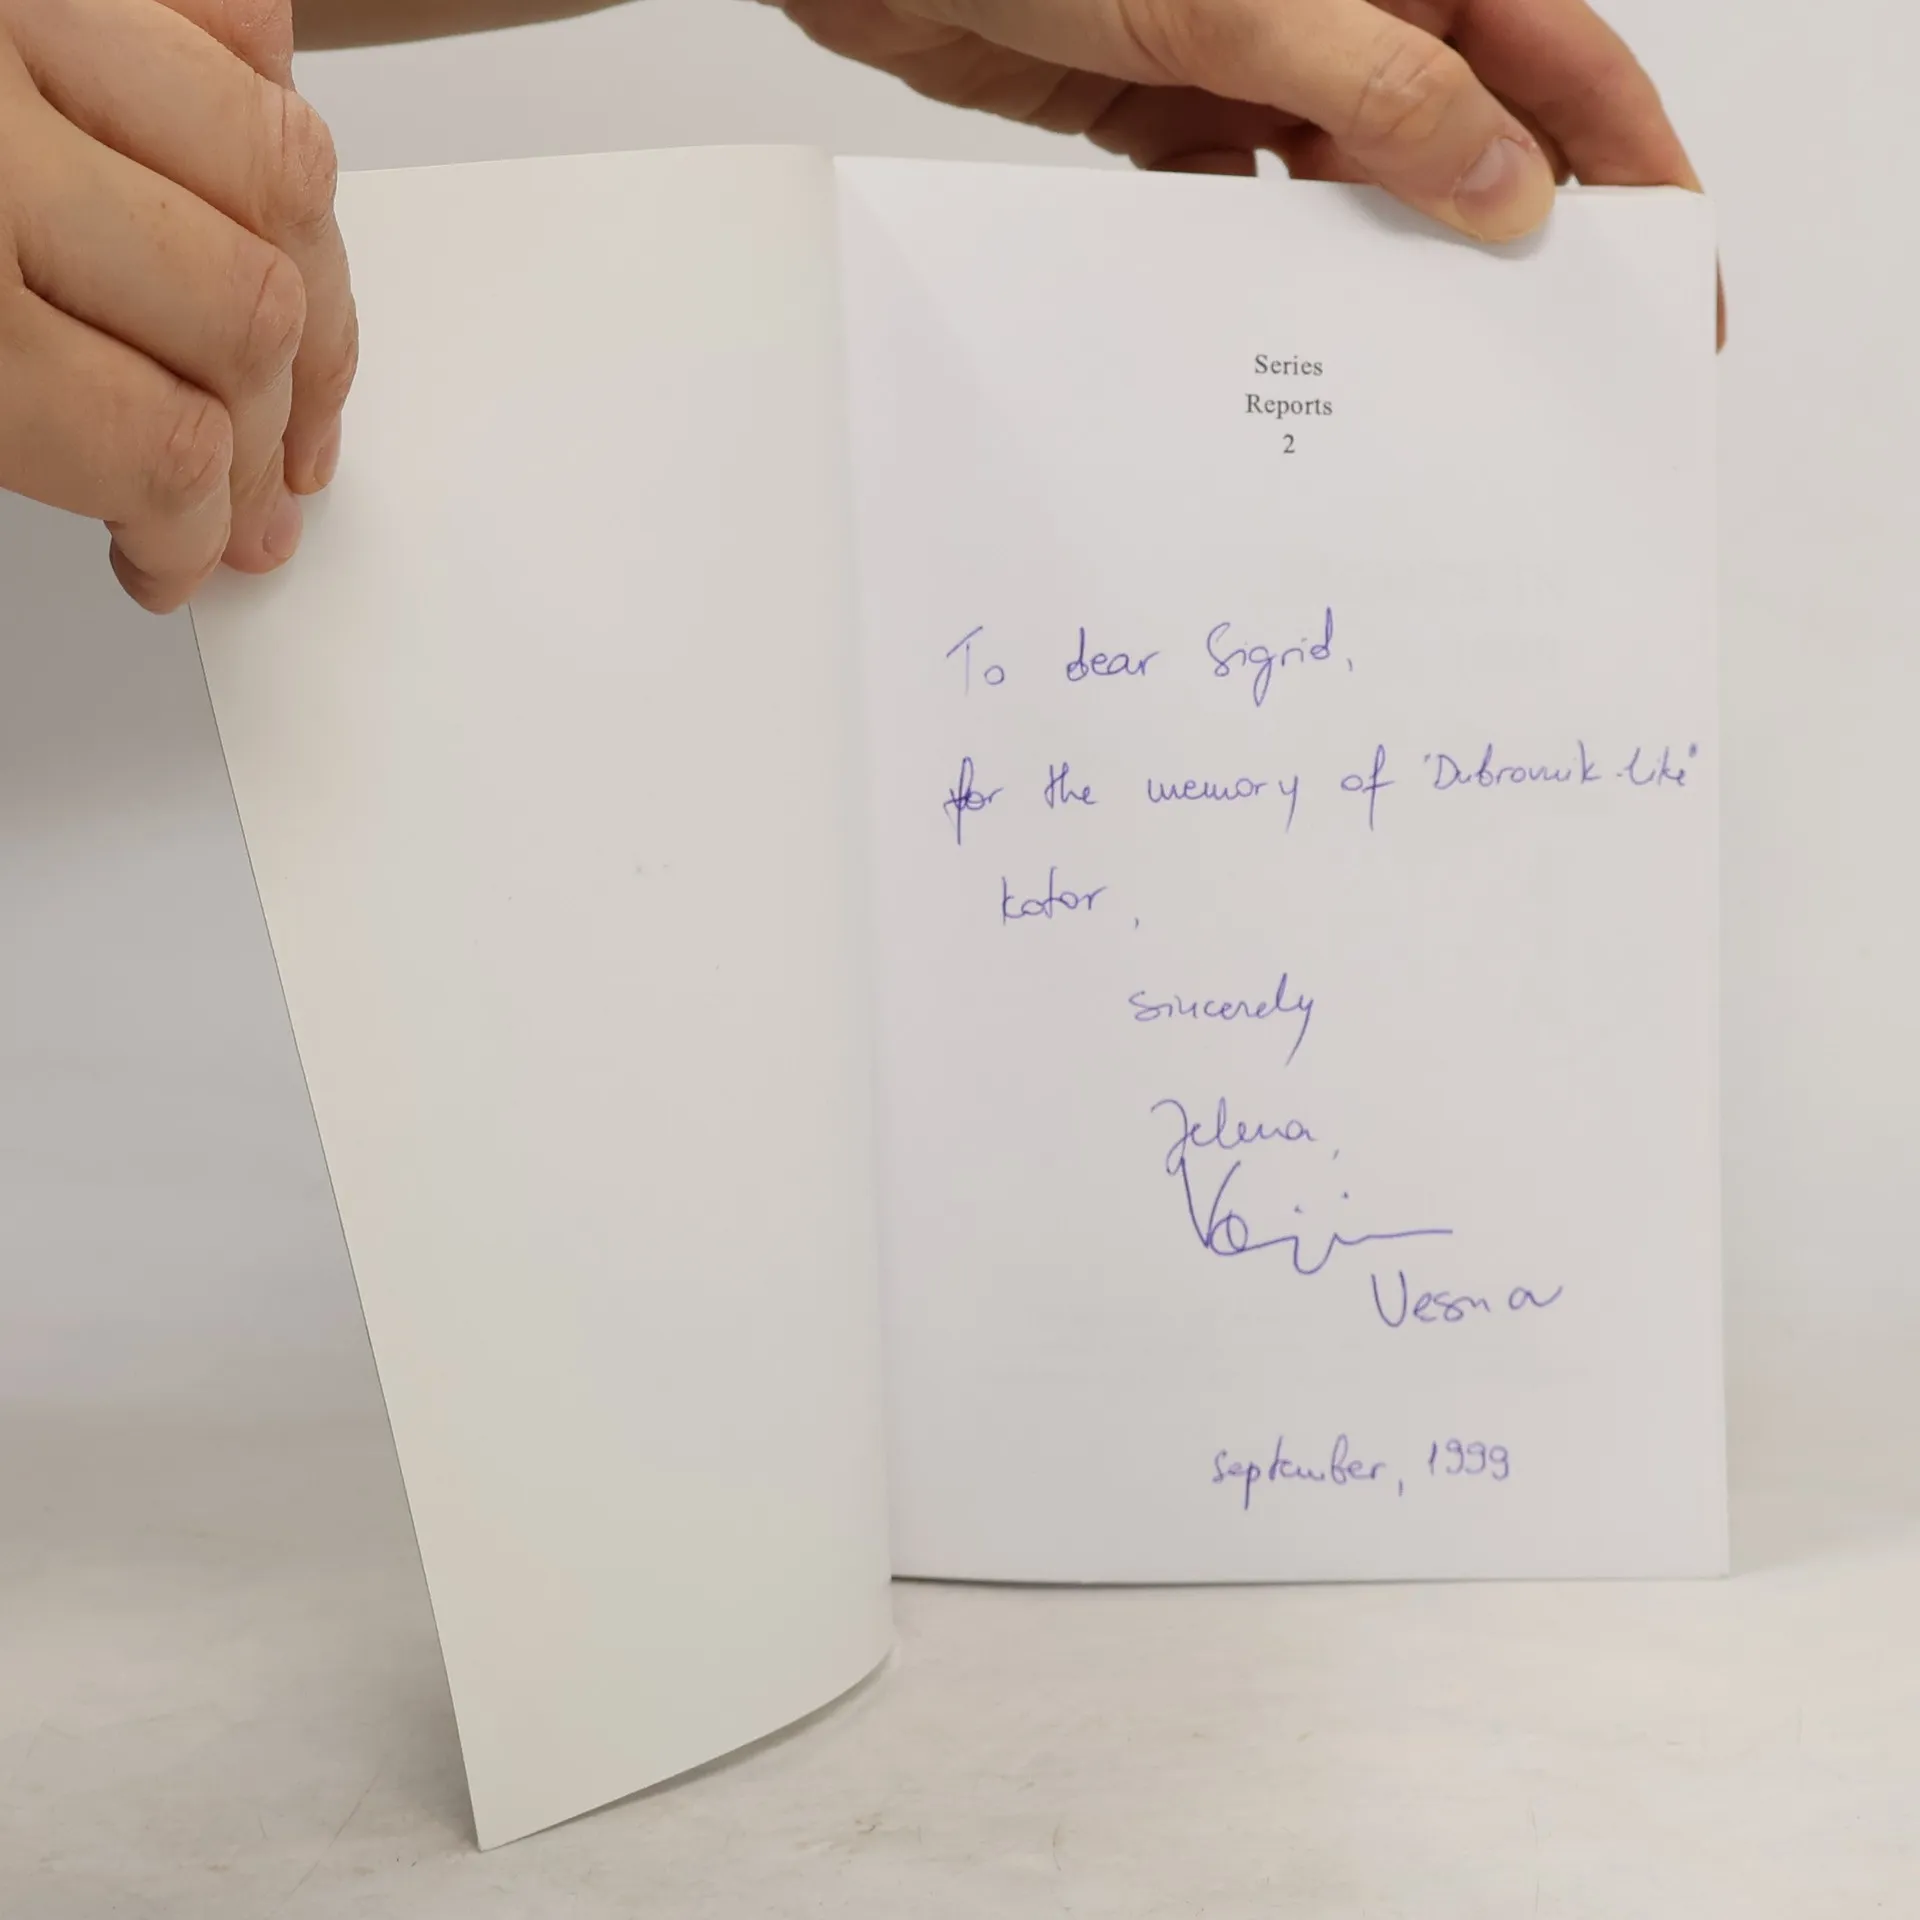 Series
Reports
2
To dear Sigrid,
for the memory of 'Dubrovnik-like'
kotor,
sincerely
Jelena,
Vesna
september, 1999